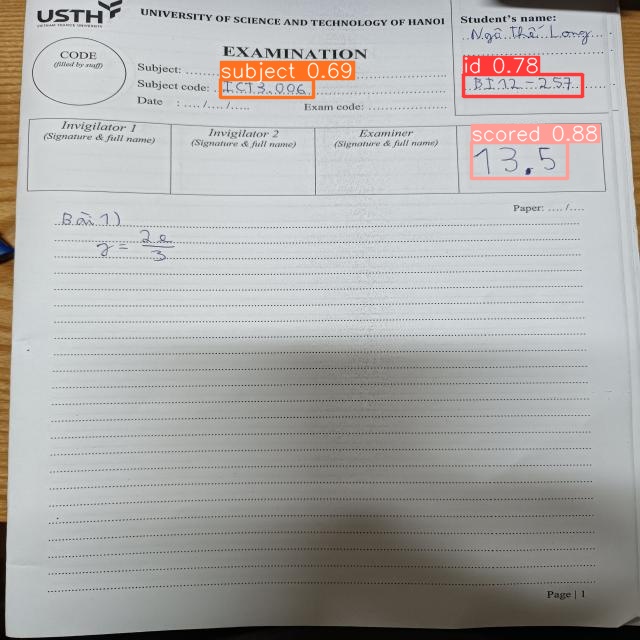 USTH
VIETNAM FRANCE UNIVERSITY
UNIVERSITY OF SCIENCE AND TECHNOLOGY OF HANOI
Student's name:
Ngô Thế Long
CODE
(filled by staff)
EXAMINATION
Subject:
subject 0.69
id 0.78
Subject code: ICT3.006
BI12-257
Date : ..../..../.....
Exam code:
Invigilator 1
(Signature & full name)
Invigilator 2
(Signature & full name)
Examiner
(Signature & full name)
scored 0.88
13.5
Paper: ..../....
Bài 1)
y = 2e/3
Page | 1